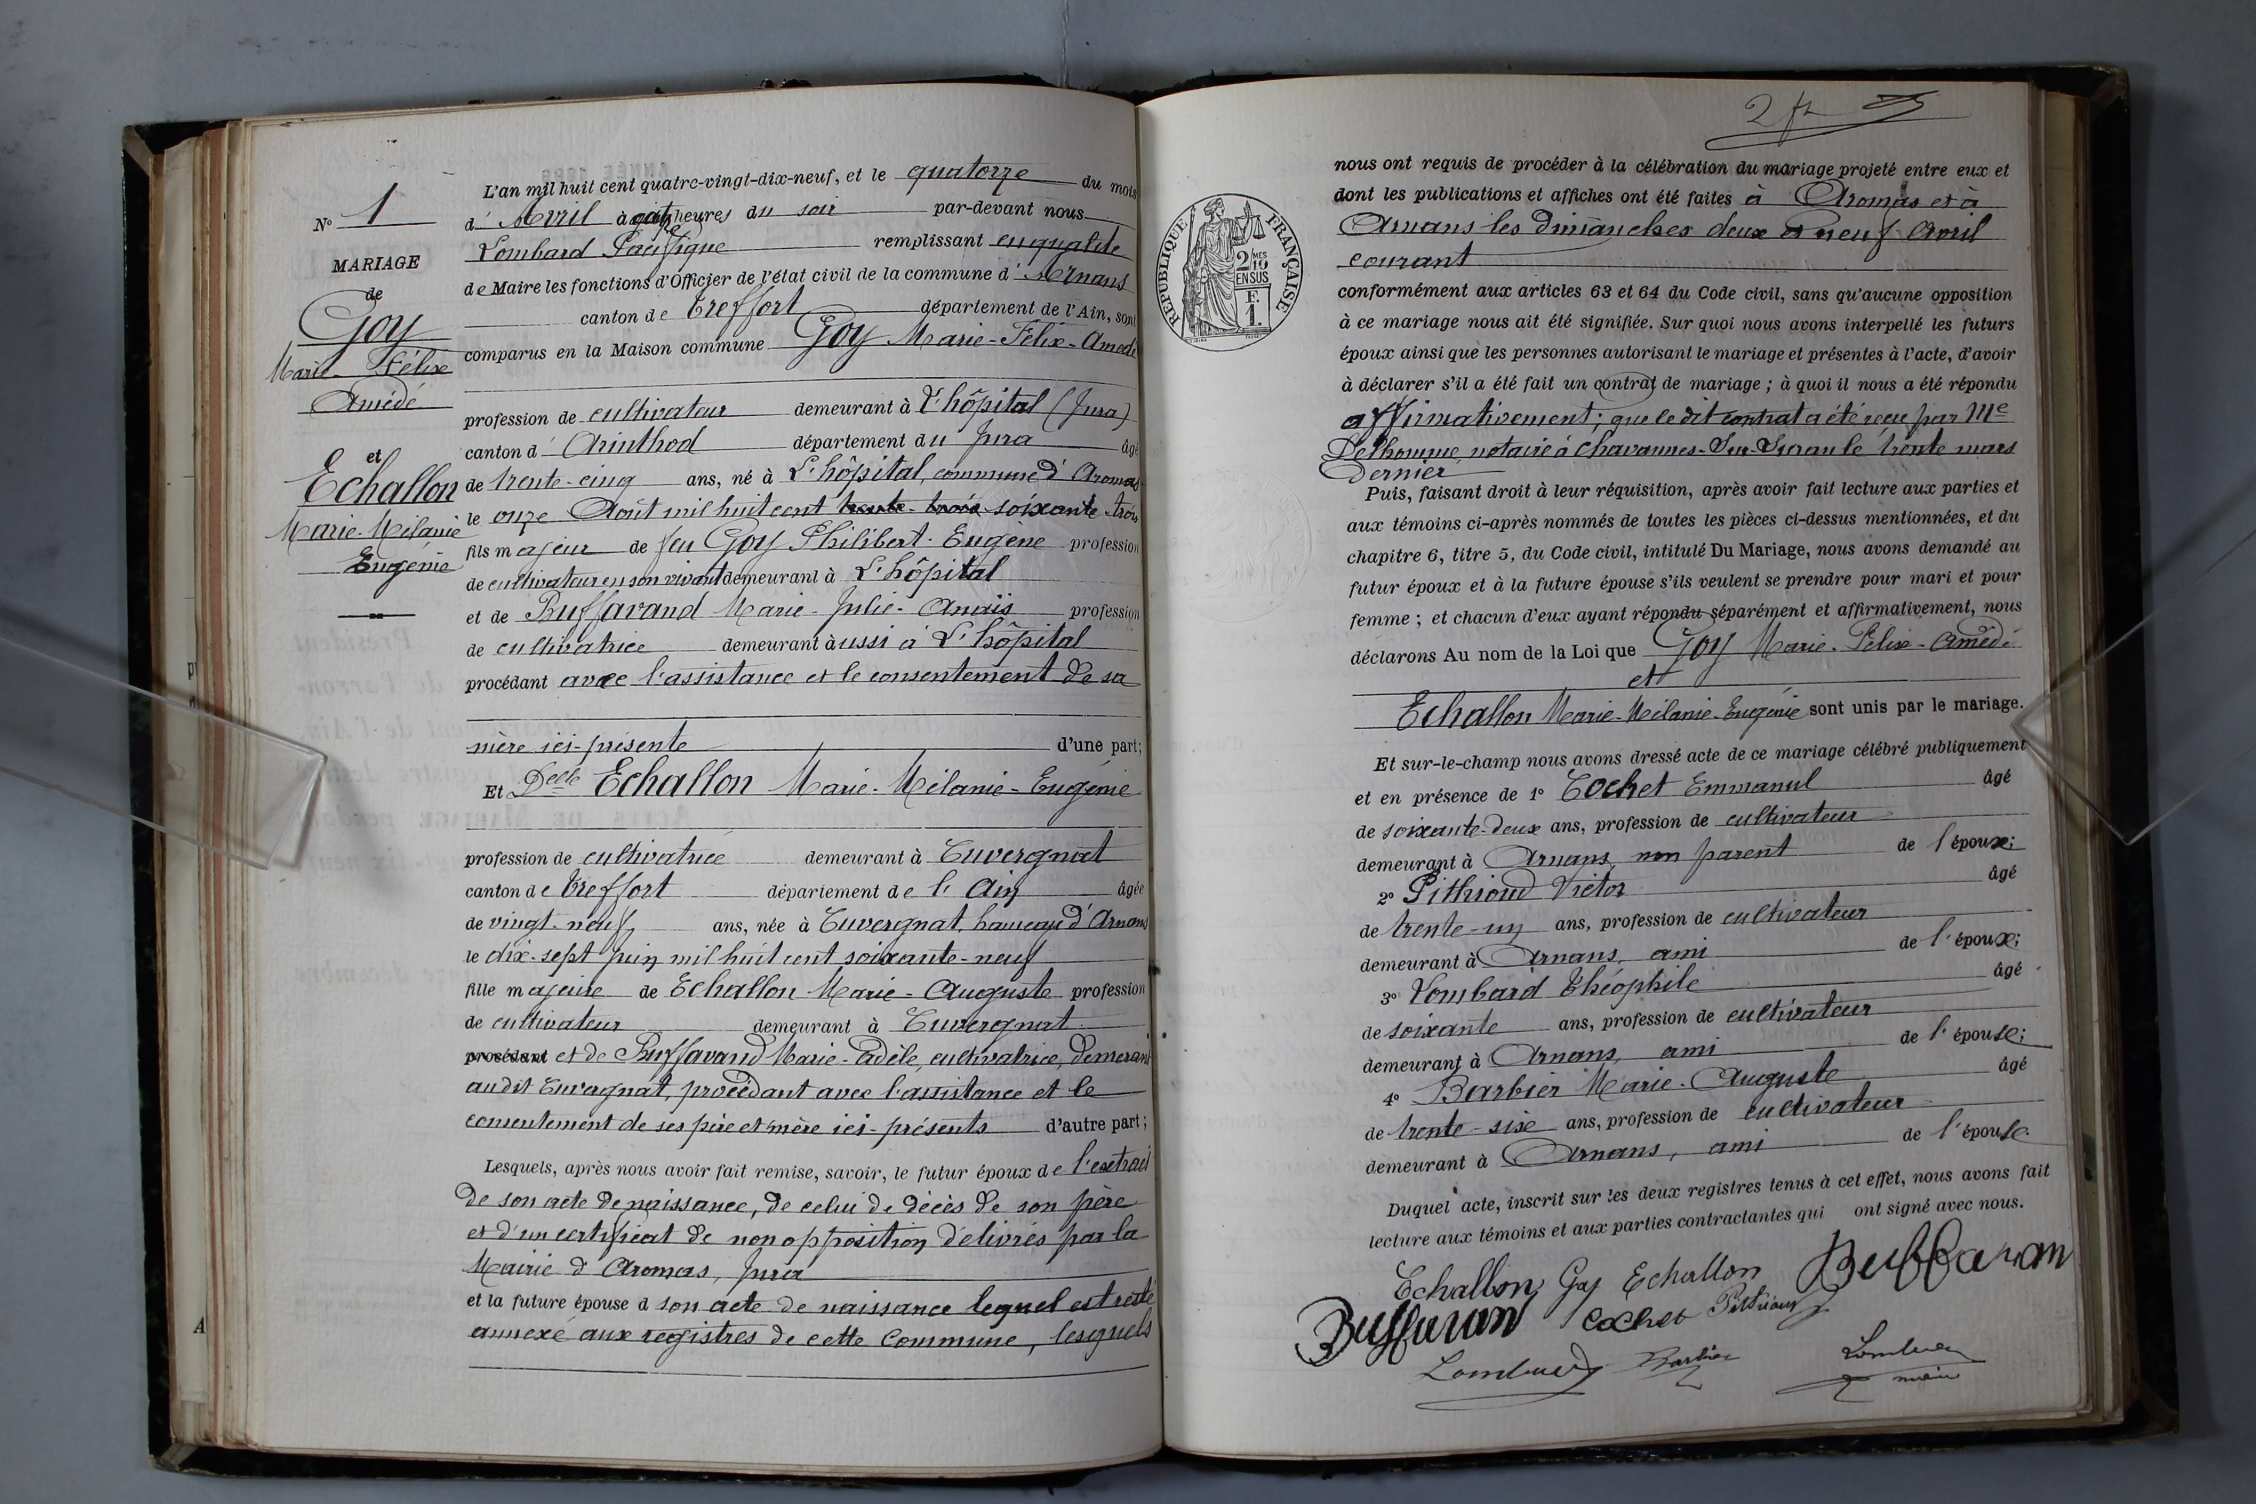 N° 1
MARIAGE
de
Goy
Marie-Félix
Amédé
et
Echallon
Marie-Mélanie
Eugénie
L'an mil huit cent quatre-vingt-dix-neuf, et le quatorze du mois
d'Avril à heures du soir par-devant nous
Lombard Pacifique remplissant en qualité
de Maire les fonctions d'Officier de l'état civil de la commune d'Arnans
canton de Treffort département de l'Ain, sont
comparus en la Maison commune Goy Marie-Félix-Amédé
profession de cultivateur demeurant à L'hôpital (Jura)
canton d'Arinthod département du Jura âgé
de trente-cinq ans, né à L'hôpital, commune d'Aromas
le onze Août mil huit cent trente-trois soixante-trois
fils majeur de feu Goy Philibert-Eugène profession
de cultivateur en son vivant demeurant à L'hôpital
et de Buffavand Marie-Julie-Anaïs profession
de cultivatrice demeurant aussi à L'hôpital
procédant avec l'assistance et le consentement de sa
mère ici-présente d'une part;
Et Delle Echallon Marie-Mélanie-Eugénie
profession de cultivatrice demeurant à Tuvergnat
canton de Treffort département de l'Ain âgée
de vingt-neuf ans, née à Tuvergnat, hameau d'Arnans
le dix-sept juin mil huit cent soixante-neuf
fille majeure de Echallon Marie-Auguste profession
de cultivateur demeurant à Tuvergnat
procédant et de Buffavand Marie-Adèle, cultivatrice, demeurant
audit Tuvergnat, procédant avec l'assistance et le
consentement de ses père et mère ici-présents d'autre part;
Lesquels, après nous avoir fait remise, savoir, le futur époux de l'extrait
de son acte de naissance, de celui de décès de son père
et d'un certificat de non opposition délivrés par la
Mairie d'Aromas, Jura
et la future épouse d son acte de naissance lequel est resté
annexé aux registres de cette commune, lesquels
REPUBLIQUE FRANÇAISE
2 MES
10
EN SUS
F.
1.
nous ont requis de procéder à la célébration du mariage projeté entre eux et
dont les publications et affiches ont été faites à Aromas et à
Arnans les dimanches deux et neuf avril
courant
conformément aux articles 63 et 64 du Code civil, sans qu'aucune opposition
à ce mariage nous ait été signifiée. Sur quoi nous avons interpellé les futurs
époux ainsi que les personnes autorisant le mariage et présentes à l'acte, d'avoir
à déclarer s'il a été fait un contrat de mariage ; à quoi il nous a été répondu
affirmativement; que le dit contrat a été reçu par Me
Delhomme, notaire à Chavannes-sur-Suran le trente mars
dernier
Puis, faisant droit à leur réquisition, après avoir fait lecture aux parties et
aux témoins ci-après nommés de toutes les pièces ci-dessus mentionnées, et du
chapitre 6, titre 5, du Code civil, intitulé Du Mariage, nous avons demandé au
futur époux et à la future épouse s'ils veulent se prendre pour mari et pour
femme ; et chacun d'eux ayant répondu séparément et affirmativement, nous
déclarons Au nom de la Loi que Goy Marie-Félix-Amédé
et
Echallon Marie-Mélanie-Eugénie sont unis par le mariage.
Et sur-le-champ nous avons dressé acte de ce mariage célébré publiquement
et en présence de 1° Cochet Emmanul âgé
de soixante-deux ans, profession de cultivateur
demeurant à Arnans, non parent de l'époux;
2° Pithioud Victor âgé
de trente-un ans, profession de cultivateur
demeurant à Arnans, ami de l'époux;
3° Lombard Théophile âgé
de soixante ans, profession de cultivateur
demeurant à Arnans, ami de l'épouse;
4° Barbier Marie-Auguste âgé
de trente-six ans, profession de cultivateur
demeurant à Arnans, ami de l'épouse.
Duquel acte, inscrit sur les deux registres tenus à cet effet, nous avons fait
lecture aux témoins et aux parties contractantes qui ont signé avec nous.
Echallon Goy Echallon Buffavan
Buffavan Cochet Pithioud
Lombard Barbier Lombard
maire